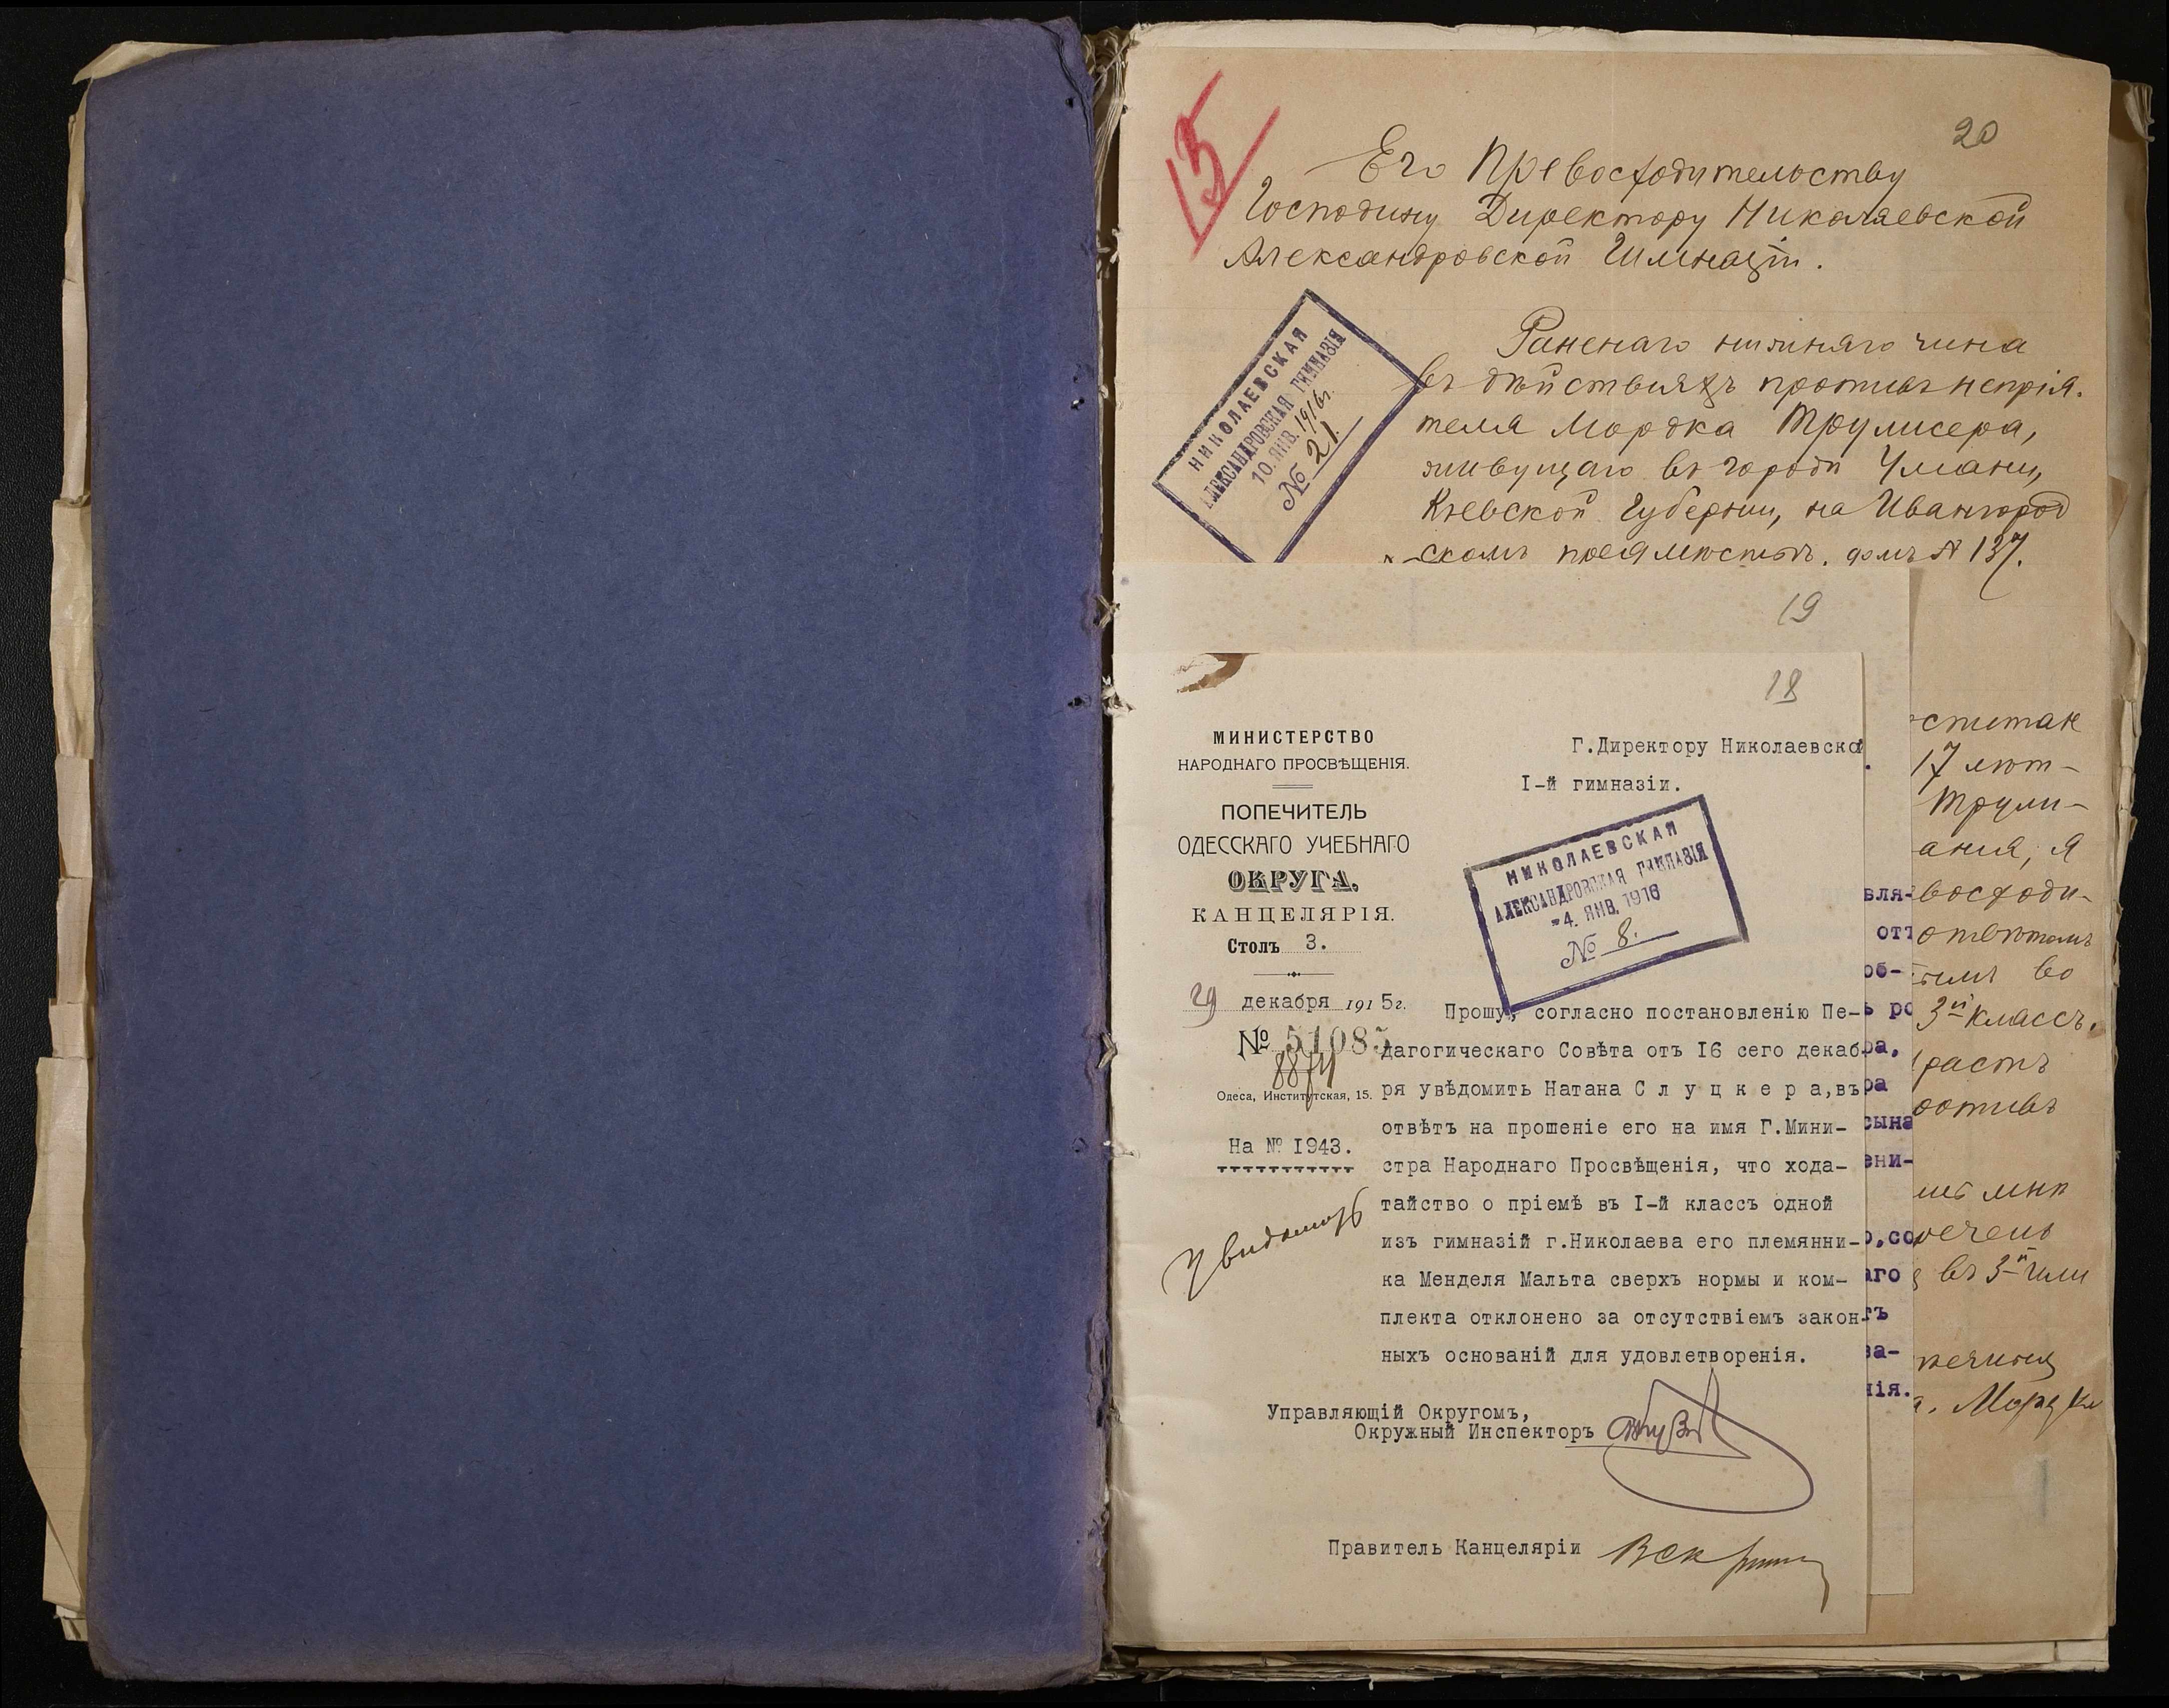 15
20
Его Превосходительству
Господину Директору Николаевской
Александровской Гимназіи.
НИКОЛАЕВСКАЯ
АЛЕКСАНДРОВСКАЯ ГИМНАЗІЯ
10. ЯНВ. 1916г.
№ 21.
Раненаго нижняго чина
въ дѣйствіяхъ противъ непрія-
теля Мордка Трулисера,
живущаго въ городѣ Умани,
Кіевской Губерніи, на Ивангород
-скомъ предмѣстьѣ. домъ № 137.
19
18
МИНИСТЕРСТВО
НАРОДНАГО ПРОСВѢЩЕНІЯ.
ПОПЕЧИТЕЛЬ
ОДЕССКАГО УЧЕБНАГО
ОКРУГА.
КАНЦЕЛЯРІЯ.
Столъ 3.
29 декабря 1915г.
№ 51085
8874
Одеса, Институтская, 15.
На № 1943.
Увѣдомить
Г.Директору Николаевской
I-й гимназіи.
НИКОЛАЕВСКАЯ
АЛЕКСАНДРОВСКАЯ ГИМНАЗІЯ
-4. ЯНВ. 1916
№ 8.
Прошу, согласно постановленію Пе-
дагогическаго Совѣта отъ 16 сего декаб-
ря увѣдомить Натана С л у ц к е р а,въ
отвѣтъ на прошеніе его на имя Г.Мини-
стра Народнаго Просвѣщенія, что хода-
тайство о пріемѣ въ I-й классъ одной
изъ гимназій г.Николаева его племянни-
ка Менделя Мальта сверхъ нормы и ком-
плекта отклонено за отсутствіемъ закон-
ныхъ основаній для удовлетворенія.
Управляющій Округомъ,
Окружный Инспекторъ
Правитель Канцеляріи
вля-
отъ
об-
ь ро
ра,
ра
сына
ени-
о,со
аго
тъ
ва-
нія.
17 лѣт-
Трули-
анія, я
восходи-
отвѣтомъ
во
3й классъ.
растъ
отивъ
мнѣ
очень
въ 3й или